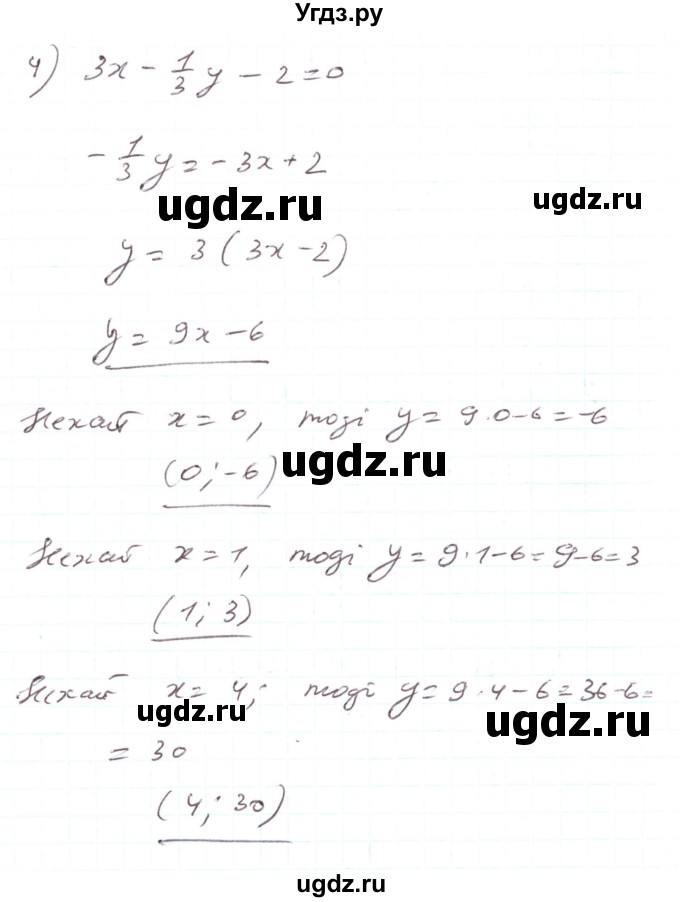 Угдз.ру
4) 3x - 1/3 y - 2 = 0
- 1/3 y = - 3x + 2
ugdz.ru
ugdz.ru
y = 3 (3x - 2)
y = 9x - 6
Нехай x = 0, тоді y = 9·0-6 = -6
(0; -6)
ugdz.ru
Нехай x = 1, тоді y = 9·1-6 = 9-6 = 3
(1; 3)
Нехай x = 4; тоді y = 9·4-6 = 36-6 =
ugdz.ru
ugdz.ru
= 30
(4; 30)
ugdz.ru